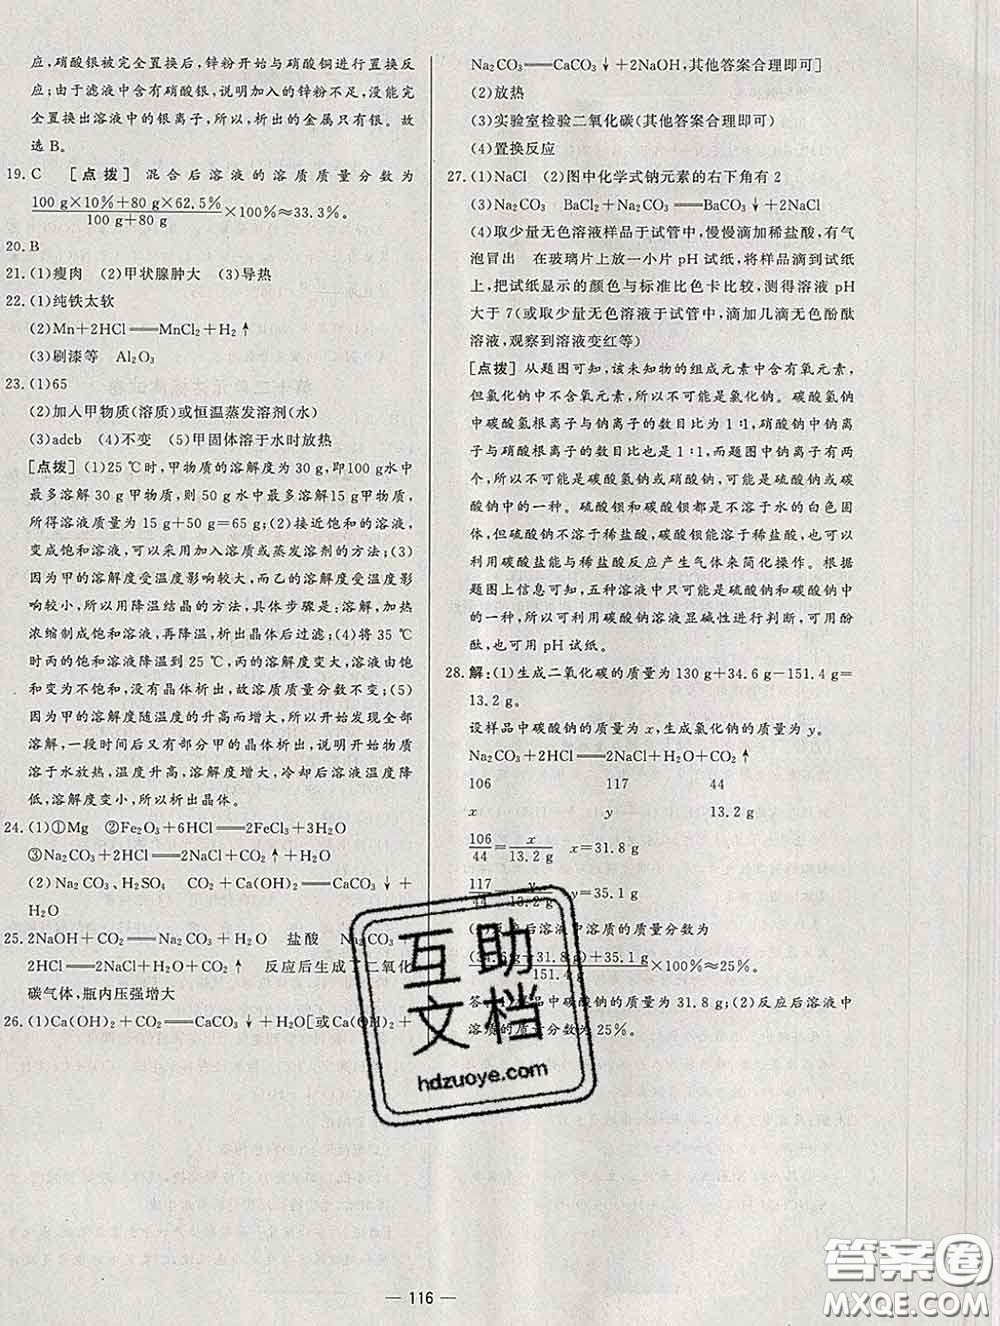 应,硝酸银被完全置换后,锌粉开始与硝酸铜进行置换反
应;由于滤液中含有硝酸银,说明加入的锌粉不足,没能完
全置换出溶液中的银离子,所以,析出的金属只有银。故
选B。
19. C [点拨] 混合后溶液的溶质质量分数为
100 g×10%+80 g×62.5%
100 g+80 g
×100%≈33.3%。
20. B
21. (1)瘦肉 (2)甲状腺肿大 (3)导热
22. (1)纯铁太软
(2)Mn+2HCl══MnCl₂+H₂↑
(3)刷漆等 Al₂O₃
23. (1)65
(2)加入甲物质(溶质)或恒温蒸发溶剂(水)
(3)adcb (4)不变 (5)甲固体溶于水时放热
[点拨] (1)25 ℃时,甲物质的溶解度为30 g,即100 g水中
最多溶解30 g甲物质,则50 g水中最多溶解15 g甲物质,
所得溶液质量为15 g+50 g=65 g;(2)接近饱和的溶液,
变成饱和溶液,可以采用加入溶质或蒸发溶剂的方法;(3)
因为甲的溶解度受温度影响较大,而乙的溶解度受温度影
响较小,所以用降温结晶的方法,具体步骤是:溶解,加热
浓缩制成饱和溶液,再降温,析出晶体后过滤;(4)将35 ℃
时丙的饱和溶液降温到25 ℃,丙的溶解度变大,溶液由饱
和变为不饱和,没有晶体析出,故溶质质量分数不变;(5)
因为甲的溶解度随温度的升高而增大,所以开始发现全部
溶解,一段时间后又有部分甲的晶体析出,说明开始物质
溶于水放热,温度升高,溶解度增大,冷却后溶液温度降
低,溶解度变小,所以析出晶体。
24. (1)①Mg ②Fe₂O₃+6HCl══2FeCl₃+3H₂O
③Na₂CO₃+2HCl══2NaCl+CO₂↑+H₂O
(2)Na₂CO₃、H₂SO₄ CO₂+Ca(OH)₂══CaCO₃↓+
H₂O
25. 2NaOH+CO₂══Na₂CO₃+H₂O 盐酸 Na₂CO₃+
2HCl══2NaCl+H₂O+CO₂↑ 反应后生成了二氧化
碳气体,瓶内压强增大
26. (1)Ca(OH)₂+CO₂══CaCO₃↓+H₂O[或Ca(OH)₂+
Na₂CO₃══CaCO₃↓+2NaOH,其他答案合理即可]
(2)放热
(3)实验室检验二氧化碳(其他答案合理即可)
(4)置换反应
27. (1)NaCl (2)图中化学式钠元素的右下角有2
(3)Na₂CO₃ BaCl₂+Na₂CO₃══BaCO₃↓+2NaCl
(4)取少量无色溶液样品于试管中,慢慢滴加稀盐酸,有气
泡冒出 在玻璃片上放一小片pH试纸,将样品滴到试纸
上,把试纸显示的颜色与标准比色卡比较,测得溶液pH
大于7(或取少量无色溶液于试管中,滴加几滴无色酚酞
溶液,观察到溶液变红等)
[点拨] 从题图可知,该未知物的组成元素中含有氧元素,
但氯化钠中不含氧元素,所以不可能是氯化钠。碳酸氢钠
中碳酸氢根离子与钠离子的数目比为1∶1,硝酸钠中钠离
子与硝酸根离子的数目比为1∶1,而题图中钠离子有两
个,所以不可能是碳酸氢钠或硝酸钠,可能是硫酸钠或碳
酸钠中的一种。硫酸钡和碳酸钡都是不溶于水的白色固
体,但硫酸钡不溶于稀盐酸,碳酸钡能溶于稀盐酸,也可以
利用碳酸盐能与稀盐酸反应产生气体来简化操作。根据
题图上信息可知,五种溶液中只可能是硫酸钠和碳酸钠中
的一种,所以可利用碳酸钠溶液显碱性进行判断,可用酚
酞,也可用pH试纸。
28. 解:(1)生成二氧化碳的质量为130 g+34.6 g-151.4 g=
13.2 g。
设样品中碳酸钠的质量为x,生成氯化钠的质量为y。
Na₂CO₃+2HCl══2NaCl+H₂O+CO₂↑
106 117 44
x y 13.2 g
106/44=x/13.2 g x=31.8 g
117/44=y/13.2 g y=35.1 g
(2)反应后溶液中溶质的质量分数为
(34.6 g-31.8 g)+35.1 g
151.4 g
×100%≈25%。
答:(1)样品中碳酸钠的质量为31.8 g;(2)反应后溶液中
溶质的质量分数为25%。
互助
文档
hdzuoye.com
116
答案圈
MXQE.COM